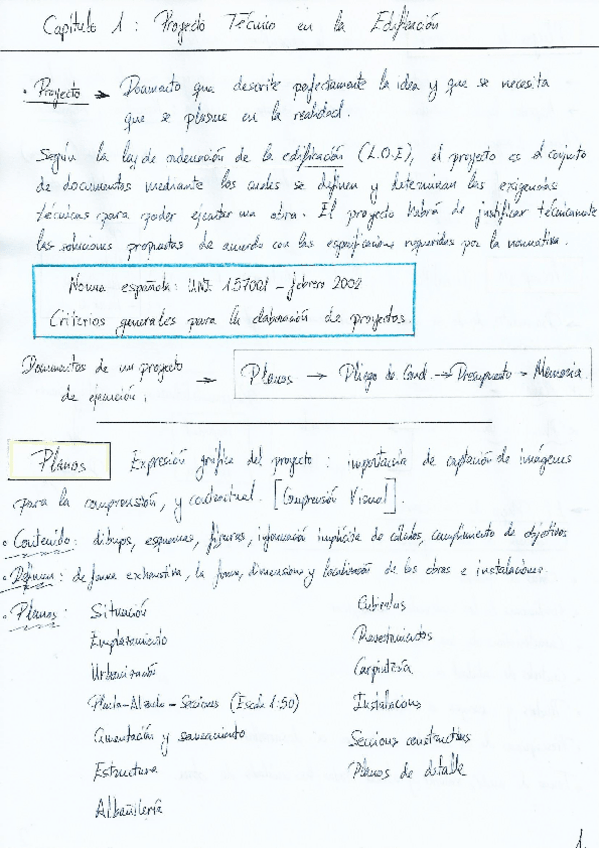 Capítulo 1 : Proyecto Técnico en la Edificación
• Proyecto → Documento que describe perfectamente la idea y que se necesita
que se plasme en la realidad.
Según la ley de ordenación de la edificación (L.O.E), el proyecto es el conjunto
de documentos mediante los cuales se definen y determinan las exigencias
técnicas para poder ejecutar una obra. El proyecto habrá de justificar técnicamente
las soluciones propuestas de acuerdo con las especificaciones requeridas por la normativa.
Norma española: UNE 157001 - febrero 2002
Criterios generales para la elaboración de proyectos.
Documentos de un proyecto
de ejecución. → Planos → Pliego de Cond. → Presupuesto → Memoria.
Planos Expresión gráfica del proyecto : importancia de captación de imágenes
para la comprensión, y contractual. [Comprensión Visual].
• Contenido: dibujos, esquemas, figuras, información implícita de cálculos, cumplimiento de objetivos
• Definen: de forma exhaustiva, la forma, dimensiones y localización de las obras e instalaciones.
• Planos: Situación
Emplazamiento
Urbanización
Planta-Alzado-Secciones (Escala 1:50)
Cimentación y saneamiento
Estructura
Albañilería
Cubiertas
Revestimientos
Carpintería
Instalaciones
Secciones constructivas
Planos de detalle
1.